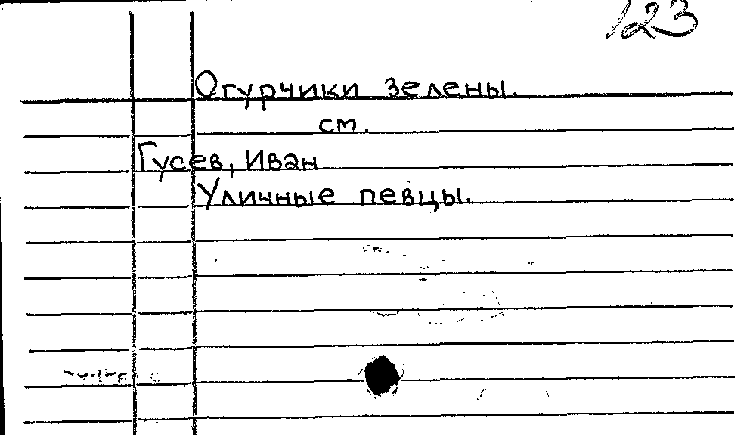 123
Огурчики зелены.
см.
Гусев, Иван
Уличные певцы.